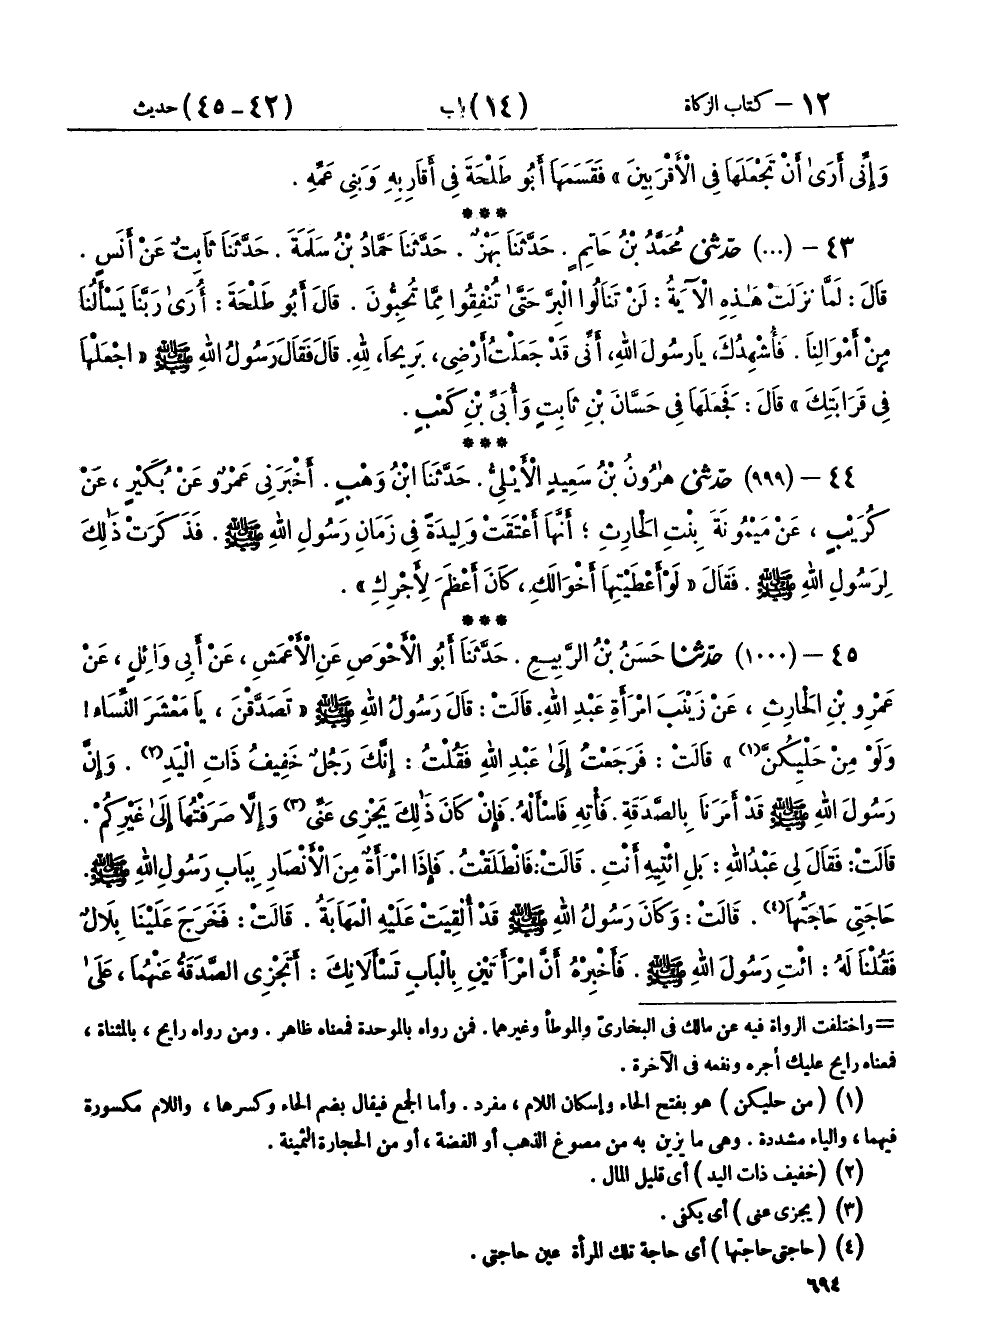 ١٢ – كتاب الزكاة (١٤) باب (٤٢ – ٤٥) حديث
وَإِنِّى أَرَىٰ أَنْ تَجْعَلَهَا فِى الْأَقْرَبِينَ » فَقَسَمَهَا أَبُو طَلْحَةَ فِى أَقَارِبِهِ وَبَنِى عَمِّهِ .
***
٤٣ – (...) حَدَّثَنِى مُحَمَّدُ بْنُ حَاتِمٍ . حَدَّثَنَا بَهْزٌ . حَدَّثَنَا حَمَّادُ بْنُ سَلَمَةَ . حَدَّثَنَا ثَابِتٌ عَنْ أَنَسٍ .
قَالَ : لَمَّا نَزَلَتْ هَـٰذِهِ الْآيَةُ : لَنْ تَنَالُوا الْبِرَّ حَتَّىٰ تُنْفِقُوا مِمَّا تُحِبُّونَ . قَالَ أَبُو طَلْحَةَ : أُرَىٰ رَبَّنَا يَسْأَلُنَا
مِنْ أَمْوَالِنَا . فَأُشْهِدُكَ، يَا رَسُولَ اللهِ، أَنِّى قَدْ جَعَلْتُ أَرْضِى، بَرِيحَا، لِلهِ. قَالَ فَقَالَ رَسُولُ اللهِ ﷺ « اجْعَلْهَا
فِى قَرَابَتِكَ » قَالَ : فَجَعَلَهَا فِى حَسَّانَ بْنِ ثَابِتٍ وَأُبَىِّ بْنِ كَعْبٍ .
***
٤٤ – (٩٩٩) حَدَّثَنِى هَٰرُونُ بْنُ سَعِيدٍ الْأَيْلِىُّ . حَدَّثَنَا ابْنُ وَهْبٍ . أَخْبَرَنِى عَمْرٌو عَنْ بُكَيْرٍ ، عَنْ
كُرَيْبٍ ، عَنْ مَيْمُونَةَ بِنْتِ الْحَارِثِ ؛ أَنَّهَا أَعْتَقَتْ وَلِيدَةً فِى زَمَانِ رَسُولِ اللهِ ﷺ . فَذَكَرَتْ ذَٰلِكَ
لِرَسُولِ اللهِ ﷺ . فَقَالَ « لَوْ أَعْطَيْتِهَا أَخْوَالَكِ، كَانَ أَعْظَمَ لِأَجْرِكِ » .
***
٤٥ – (١٠٠٠) حَدَّثَنَا حَسَنُ بْنُ الرَّبِيعِ . حَدَّثَنَا أَبُو الْأَحْوَصِ عَنِ الْأَعْمَشِ ، عَنْ أَبِى وَائِلٍ ، عَنْ
عَمْرِو بْنِ الْحَارِثِ ، عَنْ زَيْنَبَ امْرَأَةِ عَبْدِ اللهِ. قَالَتْ : قَالَ رَسُولُ اللهِ ﷺ « تَصَدَّقْنَ ، يَا مَعْشَرَ النِّسَاءِ !
وَلَوْ مِنْ حَلْيِكُنَّ(١) » قَالَتْ : فَرَجَعْتُ إِلَىٰ عَبْدِ اللهِ فَقُلْتُ : إِنَّكَ رَجُلٌ خَفِيفُ ذَاتِ الْيَدِ(٢) . وَإِنَّ
رَسُولَ اللهِ ﷺ قَدْ أَمَرَنَا بِالصَّدَقَةِ . فَأْتِهِ فَاسْأَلْهُ. فَإِنْ كَانَ ذَٰلِكَ يَجْزِى عَنِّى(٣) وَإِلَّا صَرَفْتُهَا إِلَىٰ غَيْرِكُمْ .
قَالَتْ: فَقَالَ لِى عَبْدُ اللهِ : بَلِ ائْتِيهِ أَنْتِ . قَالَتْ: فَانْطَلَقْتُ . فَإِذَا امْرَأَةٌ مِنَ الْأَنْصَارِ بِبَابِ رَسُولِ اللهِ ﷺ.
حَاجَتِى حَاجَتُهَا(٤) . قَالَتْ : وَكَانَ رَسُولُ اللهِ ﷺ قَدْ أُلْقِيَتْ عَلَيْهِ الْمَهَابَةُ . قَالَتْ : فَخَرَجَ عَلَيْنَا بِلَالٌ
فَقُلْنَا لَهُ : ائْتِ رَسُولَ اللهِ ﷺ . فَأَخْبِرْهُ أَنَّ امْرَأَتَيْنِ بِالْبَابِ تَسْأَلَانِكَ : أَتَجْزِى الصَّدَقَةُ عَنْهُمَا، عَلَىٰ
= واختلفت الرواة فيه عن مالك فى البخارىّ والموطأ وغيرهما . فمن رواه بالموحدة فمعناه ظاهر . ومن رواه رايح ، بالمثناة ،
فمعناه رايح عليك أجره ونفعه فى الآخرة .
(١) (من حليكن) هو بفتح الحاء وإسكان اللام ، مفرد . وأما الجمع فيقال بضم الحاء وكسرها ، واللام مكسورة
فيهما ، والياء مشددة . وهى ما يزين به من مصوغ الذهب أو الفضة ، أو من الحجارة الثمينة .
(٢) (خفيف ذات اليد) أى قليل المال .
(٣) (يجزى عنى) أى يكفى .
(٤) (حاجتى حاجتها) أى حاجة تلك المرأة عين حاجتى .
٦٩٤